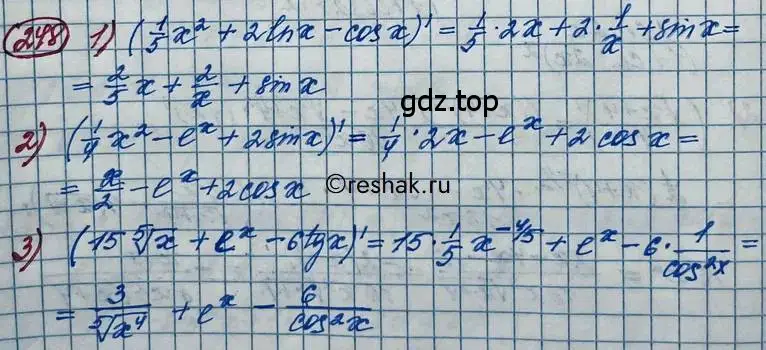 248 1) (1/5 x² + 2lnx − cosx)' = 1/5 · 2x + 2 · 1/x + sinx =
= 2/5 x + 2/x + sinx
gdz.top
2) (1/4 x² − eˣ + 2sinx)' = 1/4 · 2x − eˣ + 2cosx =
= x/2 − eˣ + 2cosx
©reshak.ru
3) (15 ⁵√x + eˣ − 6tgx)' = 15 · 1/5 x^(−4/5) + eˣ − 6 · 1/cos²x =
= 3/⁵√x⁴ + eˣ − 6/cos²x